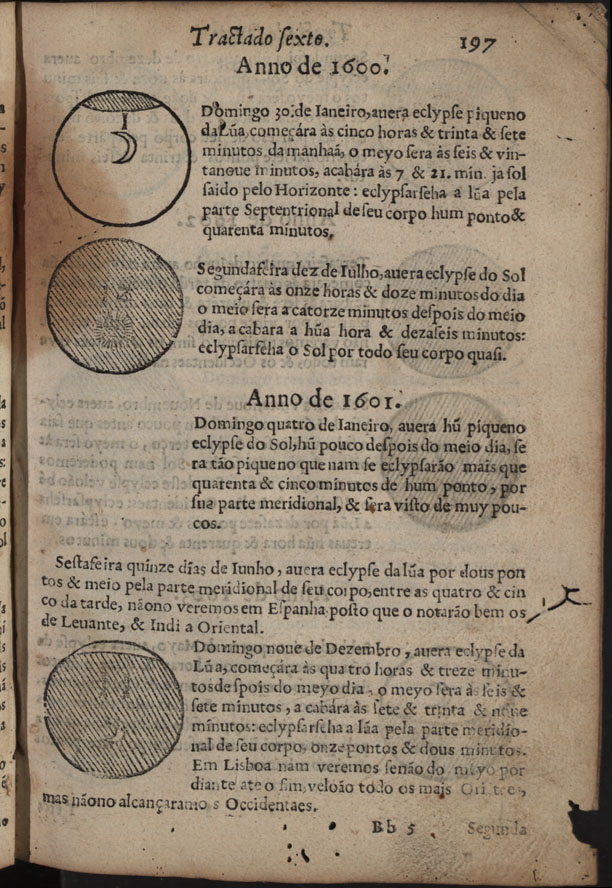 Tractado sexto. 197
Anno de 1600.
Domingo 30. de Ianeiro, auera eclypse piqueno
da Lũa, começára às cinco horas & trinta & sete
minutos da manhaã, o meyo sera às seis & vin-
tanoue minutos, acabára às 7 & 21. min. ja sol
saido pelo Horizonte : eclypsarseha a lũa pela
parte Septentrional de seu corpo hum ponto &
quarenta minutos.
Segundafeira dez de Iulho, auera eclypse do Sol
começára às onze horas & doze minutos do dia
o meio sera a catorze minutos despois do meio
dia, acabara a hũa hora & dezaseis minutos:
eclypsarseha o Sol por todo seu corpo quasi.
Anno de 1601.
Domingo quatro de Ianeiro, auera hũ piqueno
eclypse do Sol, hũ pouco despois do meio dia, se
ra tão piqueno que nam se eclypsarão mais que
quarenta & cinco minutos de hum ponto, por
sua parte meridional, & sera visto de muy pou-
cos.
Sestafeira quinze días de Iunho, auera eclypse da lũa por dous pon
tos & meio pela parte meridional de seu corpo, entre as quatro & cin
co da tarde, nãono veremos em Espanha posto que o notarão bem os
de Leuante, & Indi a Oriental.
Domingo noue de Dezembro, auera eclypse da
Lũa, começára às quatro horas & treze minu-
tos despois do meyo dia, o meyo sera às seis &
sete minutos, acabára às sete & trinta & noue
minutos: eclypsarseha a lũa pela parte meridio-
nal de seu corpo, onze pontos & dous minutos.
Em Lisboa nam veremos senão do meyo por
diante ate o fim, veloão todo os mais
mas nãono alcançaramo s Occidentaes.
Bb 5 Segunda